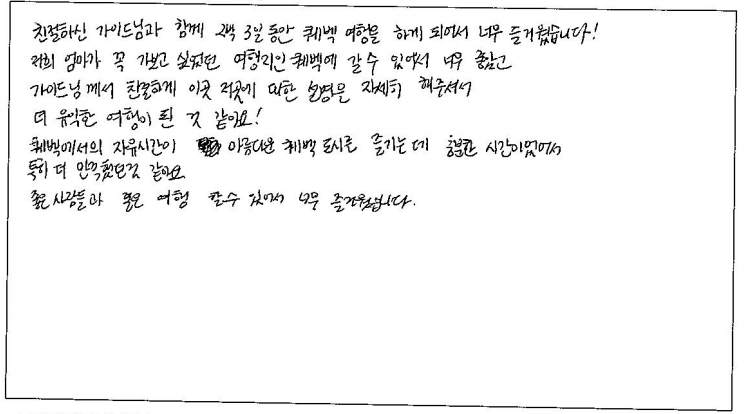 친절하신 가이드님과 함께 2박 3일 동안 퀘벡 여행을 하게 되어서 너무 즐거웠습니다!
저희 엄마가 꼭 가보고 싶었던 여행지인 퀘벡에 갈 수 있어서 너무 좋았고
가이드님께서 친절하게 이곳 저곳에 대한 설명을 자세히 해주셔서
더 유익한 여행이 된 것 같아요!
퀘벡에서의 자유시간이 아름다운 퀘벡 도시를 즐기는데 충분한 시간이었어서
특히 더 만족했던것 같아요
좋은 사람들과 좋은 여행 할수 있어서 너무 즐거웠습니다.